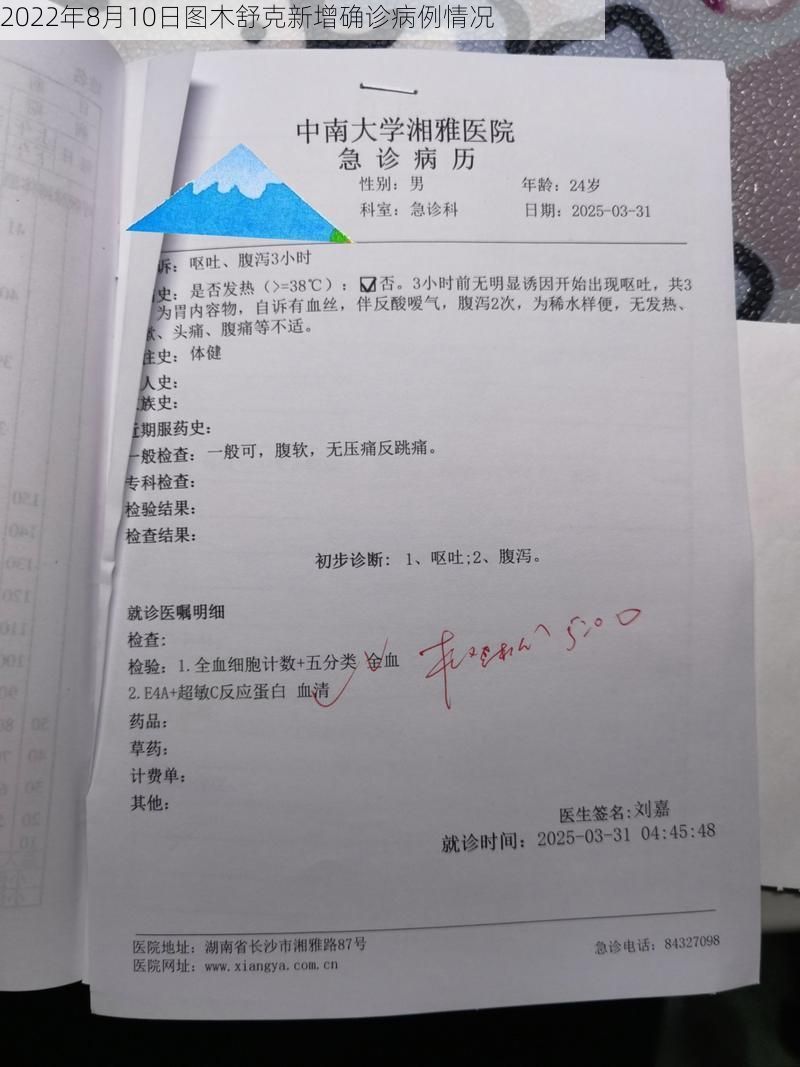 2022年8月10日图木舒克新增确诊病例情况
中南大学湘雅医院
急 诊 病 历
性别：男 年龄：24岁
科室：急诊科 日期：2025-03-31
诉：呕吐、腹泻3小时
史：是否发热（>=38℃）：☑否。3小时前无明显诱因开始出现呕吐，共3
为胃内容物，自诉有血丝，伴反酸嗳气，腹泻2次，为稀水样便，无发热、
、头痛、腹痛等不适。
往史：体健
人史：
族史：
近期服药史：
一般检查：一般可，腹软，无压痛反跳痛。
专科检查：
检验结果：
检查结果：
初步诊断：1、呕吐;2、腹泻。
就诊医嘱明细
检查：
检验：1.全血细胞计数+五分类 全血
2.E4A+超敏C反应蛋白 血清
药品：
草药：
计费单：
其他：
医生签名:刘嘉
就诊时间：2025-03-31 04:45:48
医院地址：湖南省长沙市湘雅路87号 急诊电话：84327098
医院网址：www.xiangya.com.cn